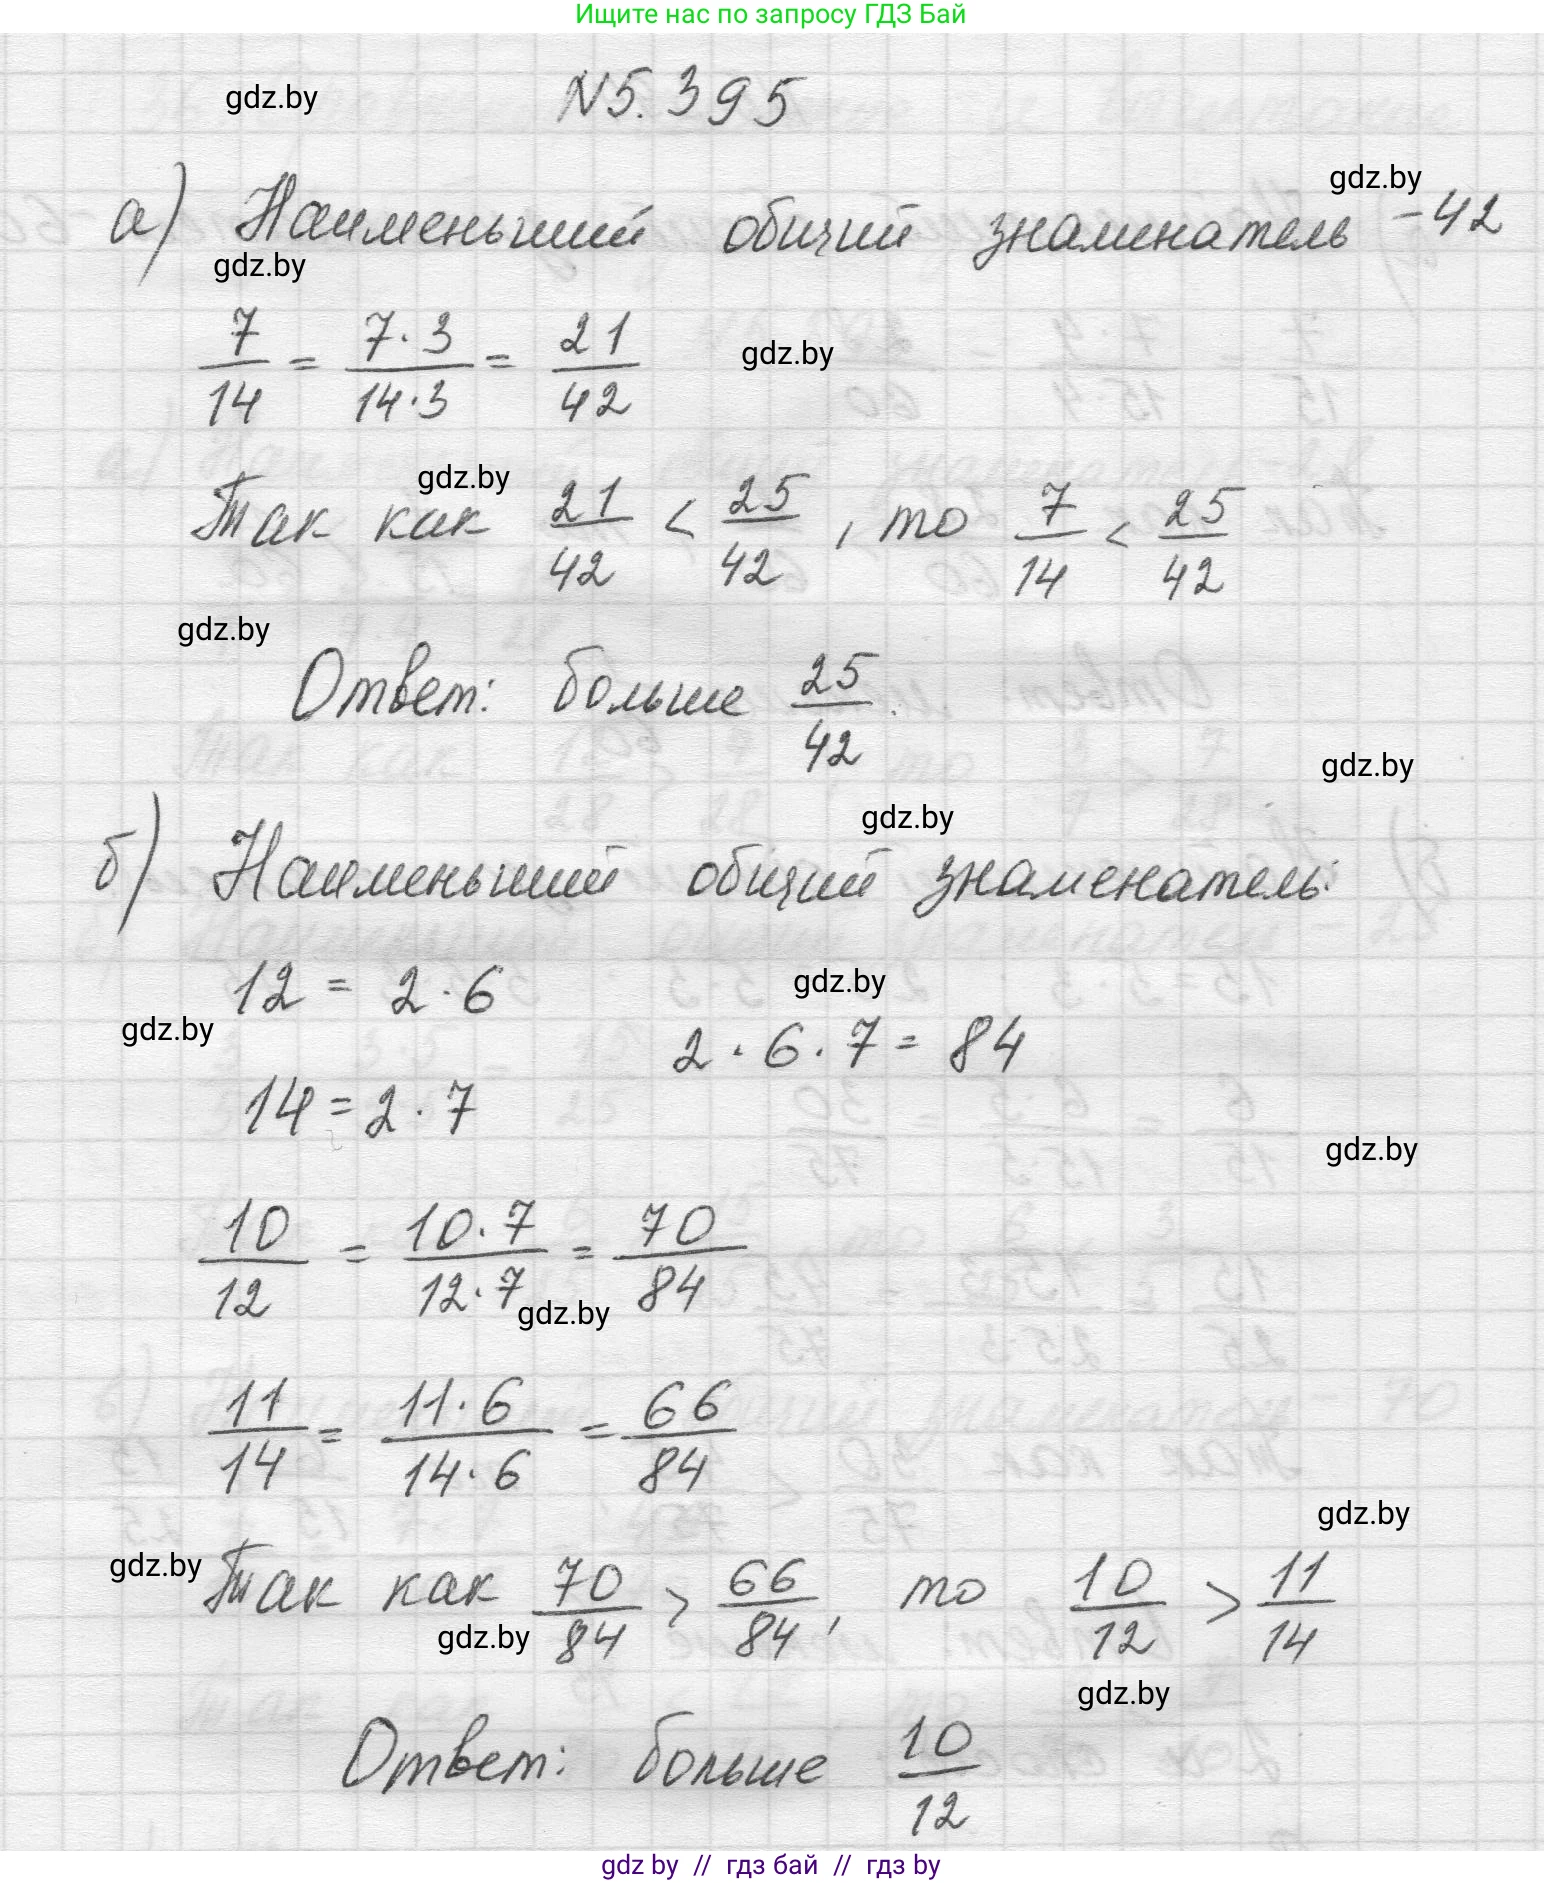 Ищите нас по запросу ГДЗ Бай
N5.395
gdz.by
gdz.by
а) Наименьший общий знаменатель -42
gdz.by
7/14 = 7·3/14·3 = 21/42
gdz.by
gdz.by
Так как 21/42 < 25/42, то 7/14 < 25/42
gdz.by
Ответ: больше 25/42.
gdz.by
gdz.by
б) Наименьший общий знаменатель:
12 = 2·6
gdz.by
gdz.by
2·6·7 = 84
14 = 2·7
gdz.by
10/12 = 10·7/12·7 = 70/84
gdz.by
11/14 = 11·6/14·6 = 66/84
gdz.by
gdz.by
Так как 70/84 > 66/84, то 10/12 > 11/14
gdz.by
gdz.by
Ответ: больше 10/12
gdz by // гдз бай // гдз by